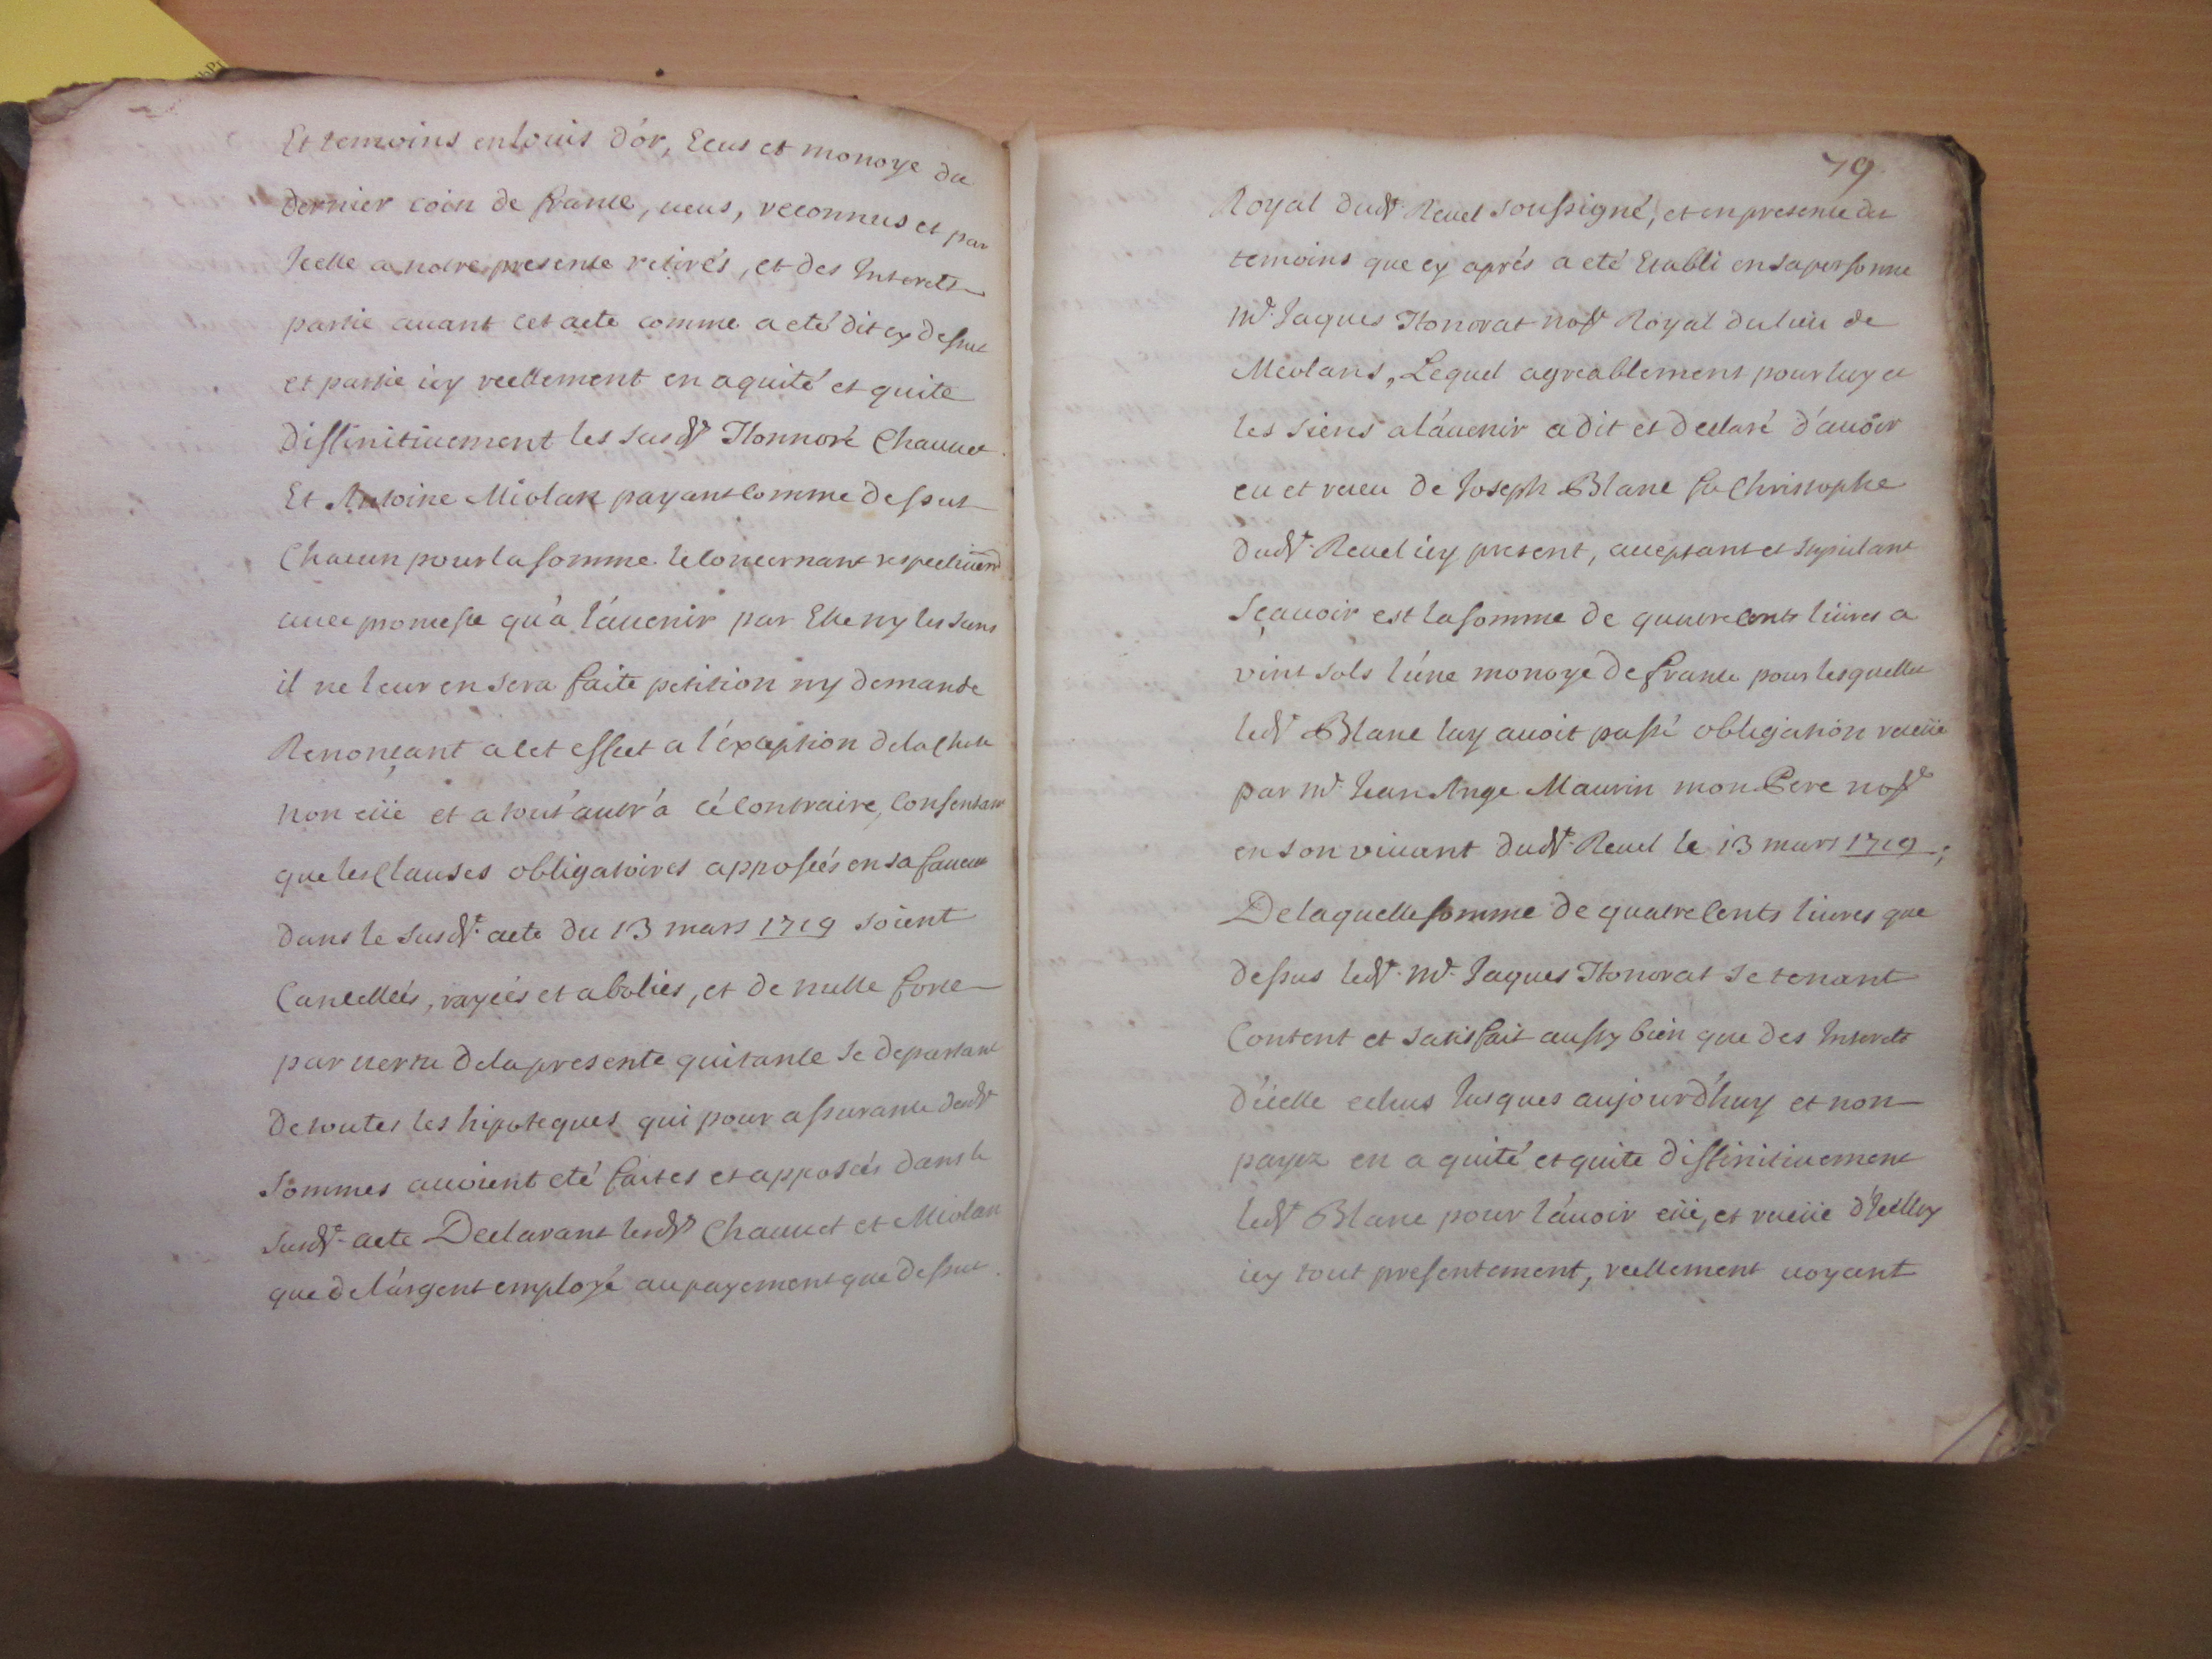 Et temoins en louis d'or, Ecus et monoye du
dernier coin de france, veus, reconnus et par
Icelle a notre presence retirés, et des Interets
partie avant cet acte comme a eté dit cy dessus
et partie icy reellement en a quité et quite
diffinitivement les susdts Honnoré Chauvet
Et Antoine Miolan payant comme dessus
Chacun pour la somme le concernant respectivemt
avec promesse qu'a l'avenir par Elle ny les siens
il ne leur en sera faite petition ny demande
Renonçant a cet effect a l'éxception de la chose
non eüe et a tout'autr'a ce contraire, Consentant
que les Clauses obligatoires apposées en sa faveur
dans le susdt. acte du 13 mars 1719 soient
Cancellées, rayées et abolies, et de nulle force
par vertu de la presente quitance se departant
de toutes les hipoteques qui pour assurance desdt
sommes avoient eté faites et apposées dans le
susdt. acte Declarant lesdts Chauvet et Miolan
que de l'argent employé au payement que dessus
79
Royal dudt. Revel soussigné, et en presence des
temoins que cy aprés a eté Etabli en sa personne
Mr. Jaques Honorat nore Royal du lieu de
Meolans, Lequel agreablement pour luy et
les siens a l'avenir a dit et declaré d'avoir
eu et receu de Joseph Blanc fu Christophe
dudt. Revel icy present, acceptant et stipulant
sçavoir est la somme de quatre cents livres a
vint sols l'une monoye de france pour lesquelles
ledt Blanc luy avoit passé obligation receüe
par Mr. Jean Ange Maurin mon Pere nore
en son vivant dudt. Revel le 13 mars 1719;
De laquelle somme de quatre cents livres que
dessus ledt. Mr. Jaques Honorat se tenant
Content et satisfait aussy bien que des Interets
d'icelle echus Jusques aujourd'huy et non
payez en a quité et quite diffinitivement
ledt Blanc pour l'avoir eüe, et receüe d'Icelluy
icy tout presentement, reellement voyant